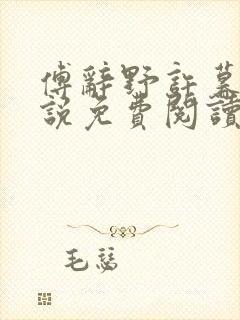 傅辭野許慕
說免費閱讀
毛瑟